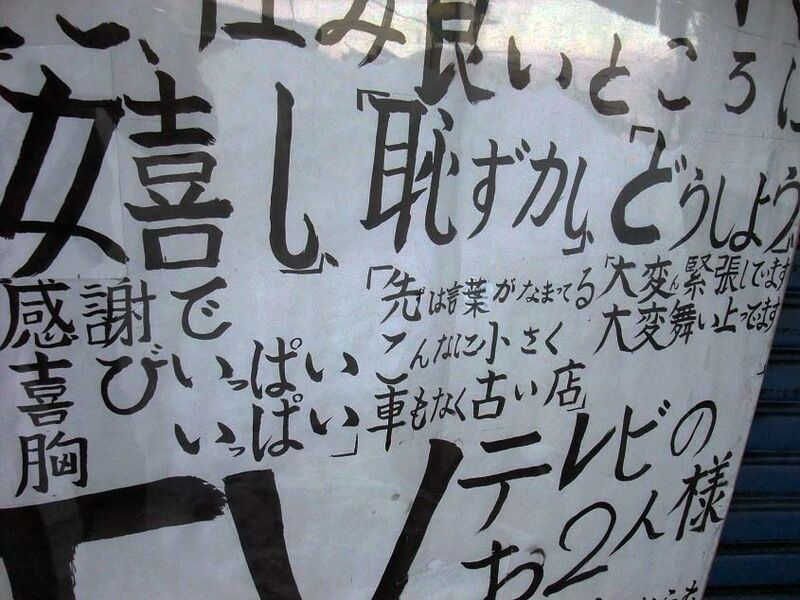 住み良いところに
嬉し」、「恥ずかし」、「どうしよう」
感謝で
喜びいっぱい
胸いっぱい」
「先ずは言葉がなまってる
こんなに小さく
車もなく古い店」
「大変ん緊張しています
大変舞い上ってます」
TV
テレビの
お2人様